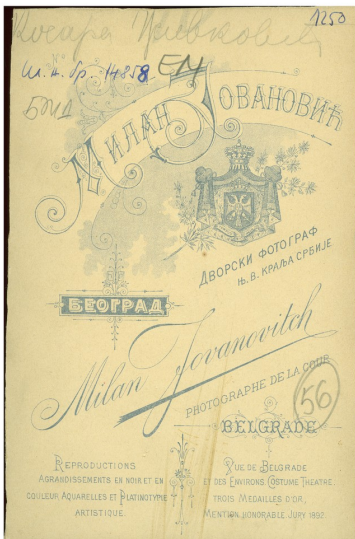 1250
Косара Цвјетковић
И. н. бр. 14858 ЕМ
МИЛАН ЈОВАНОВИЋ
ДВОРСКИ ФОТОГРАФ
Њ. В. КРАЉА СРБИЈЕ
БЕОГРАД
Milan Jovanovitch
PHOTOGRAPHE DE LA COUR
56
BELGRADE
REPRODUCTIONS
AGRANDISSEMENTS EN NOIR ET EN
COULEUR AQUARELLES ET PLATINOTYPIE
ARTISTIQUE.
VUE DE BELGRADE
ET DES ENVIRONS, COSTUME THEATRE.
TROIS MEDAILLES D'OR,
MENTION HONORABLE JURY 1892.